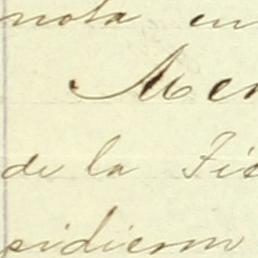 nota en
Mer
de la Fis
pidieron